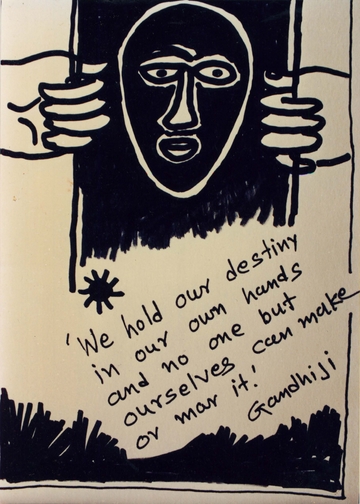 'We hold our destiny
in our own hands
and no one but
ourselves can make
or mar it.'
Gandhiji